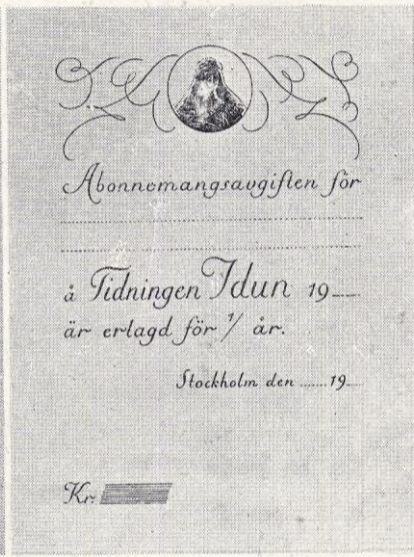 Abonnemangsavgiften för
å Tidningen Idun 19
är erlagd för 1/ år.
Stockholm den ...... 19
Kr.